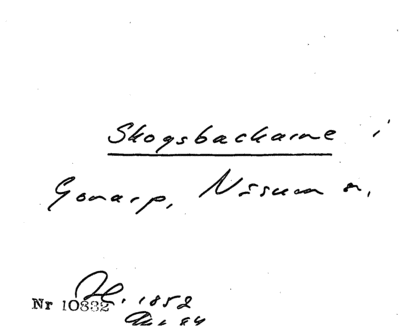 Skogsbackarne i
Gonarp, Näsum s,
Nr 10832
H. 1852